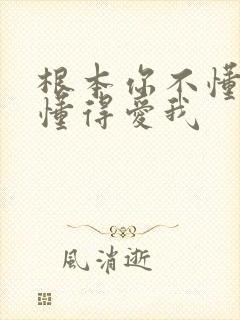 根本你不懂
懂得愛我
風消逝